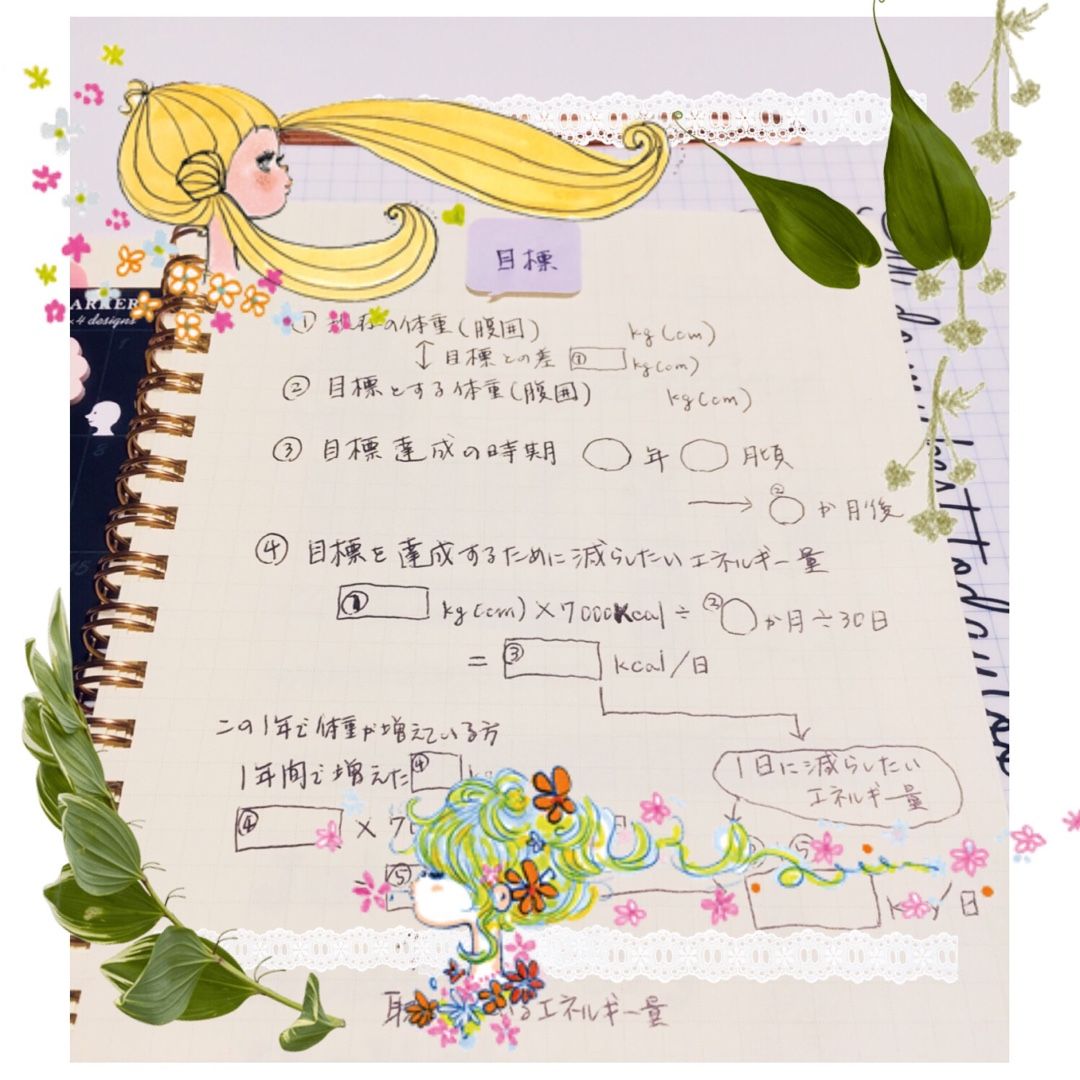 目標
① 現在の体重(腹囲) kg(cm)
↕ 目標との差 ① kg(cm)
② 目標とする体重(腹囲) kg(cm)
③ 目標達成の時期 ○年○月頃
→ ②○か月後
④ 目標を達成するために減らしたいエネルギー量
① kg(cm)×7000kcal÷②○か月÷30日
= ③ kcal/日
この1年で体重が増えている方
1年間で増えた④
1日に減らしたい
エネルギー量
④ × 7
⑤
⑤
日
エネルギー量
ARKER
×4 designs
8
15